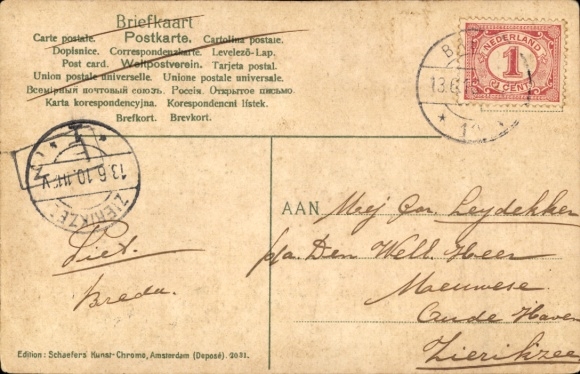 Briefkaart
Carte postale. Postkarte. Cartolina postale.
Dopisnice. Correspondenzkarte. Levelező-Lap.
Post card. Weltpostverein. Tarjeta postal.
Union postale universelle. Unione postale universale.
Всемірный почтовый союзъ. Россія. Открытое письмо.
Karta korespondencyjna. Korespondencni listek.
Brefkort. Brevkort.
NEDERLAND
1
1 CENT
13.6
ZIERIKZEE
13.6.10.11V
AAN Mej Cor Leydekker
p/a. Den Well. Heer
Meeuwese.
Oude Haven
Zierikzee
Liet.
Breda.
Edition: Schaefers Kunst-Chromo, Amsterdam (Deposé). 2031.